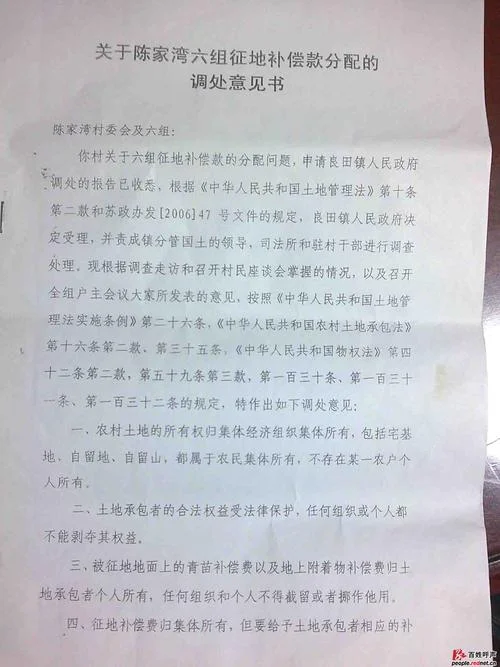 关于陈家湾六组征地补偿款分配的
调处意见书
陈家湾村委会及六组：
你村关于六组征地补偿款的分配问题，申请良田镇人民政府
调处的报告已收悉，根据《中华人民共和国土地管理法》第十条
第二款和苏政办发[2006]47 号文件的规定，良田镇人民政府决
定受理，并责成镇分管国土的领导，司法所和驻村干部进行调查
处理。现根据调查走访和召开村民座谈会掌握的情况，以及召开
全组户主会议大家所发表的意见，按照《中华人民共和国土地管
理法实施条例》第二十六条，《中华人民共和国农村土地承包法》
第十六条第二款、第三十五条，《中华人民共和国物权法》第四
十二条第二款，第五十九条第三款，第一百三十条、第一百三十
一条、第一百三十二条的规定，特作出如下调处意见：
一、农村土地的所有权归集体经济组织集体所有，包括宅基
地、自留地、自留山，都属于农民集体所有，不存在某一农户个
人所有。
二、土地承包者的合法权益受法律保护，任何组织或个人都
不能剥夺其权益。
三、被征地地面上的青苗补偿费以及地上附着物补偿费归土
地承包者个人所有，任何组织和个人不得截留或者挪作他用。
四、征地补偿费归集体所有，但要给予土地承包者相应的补
百姓呼声
people.rednet.cn